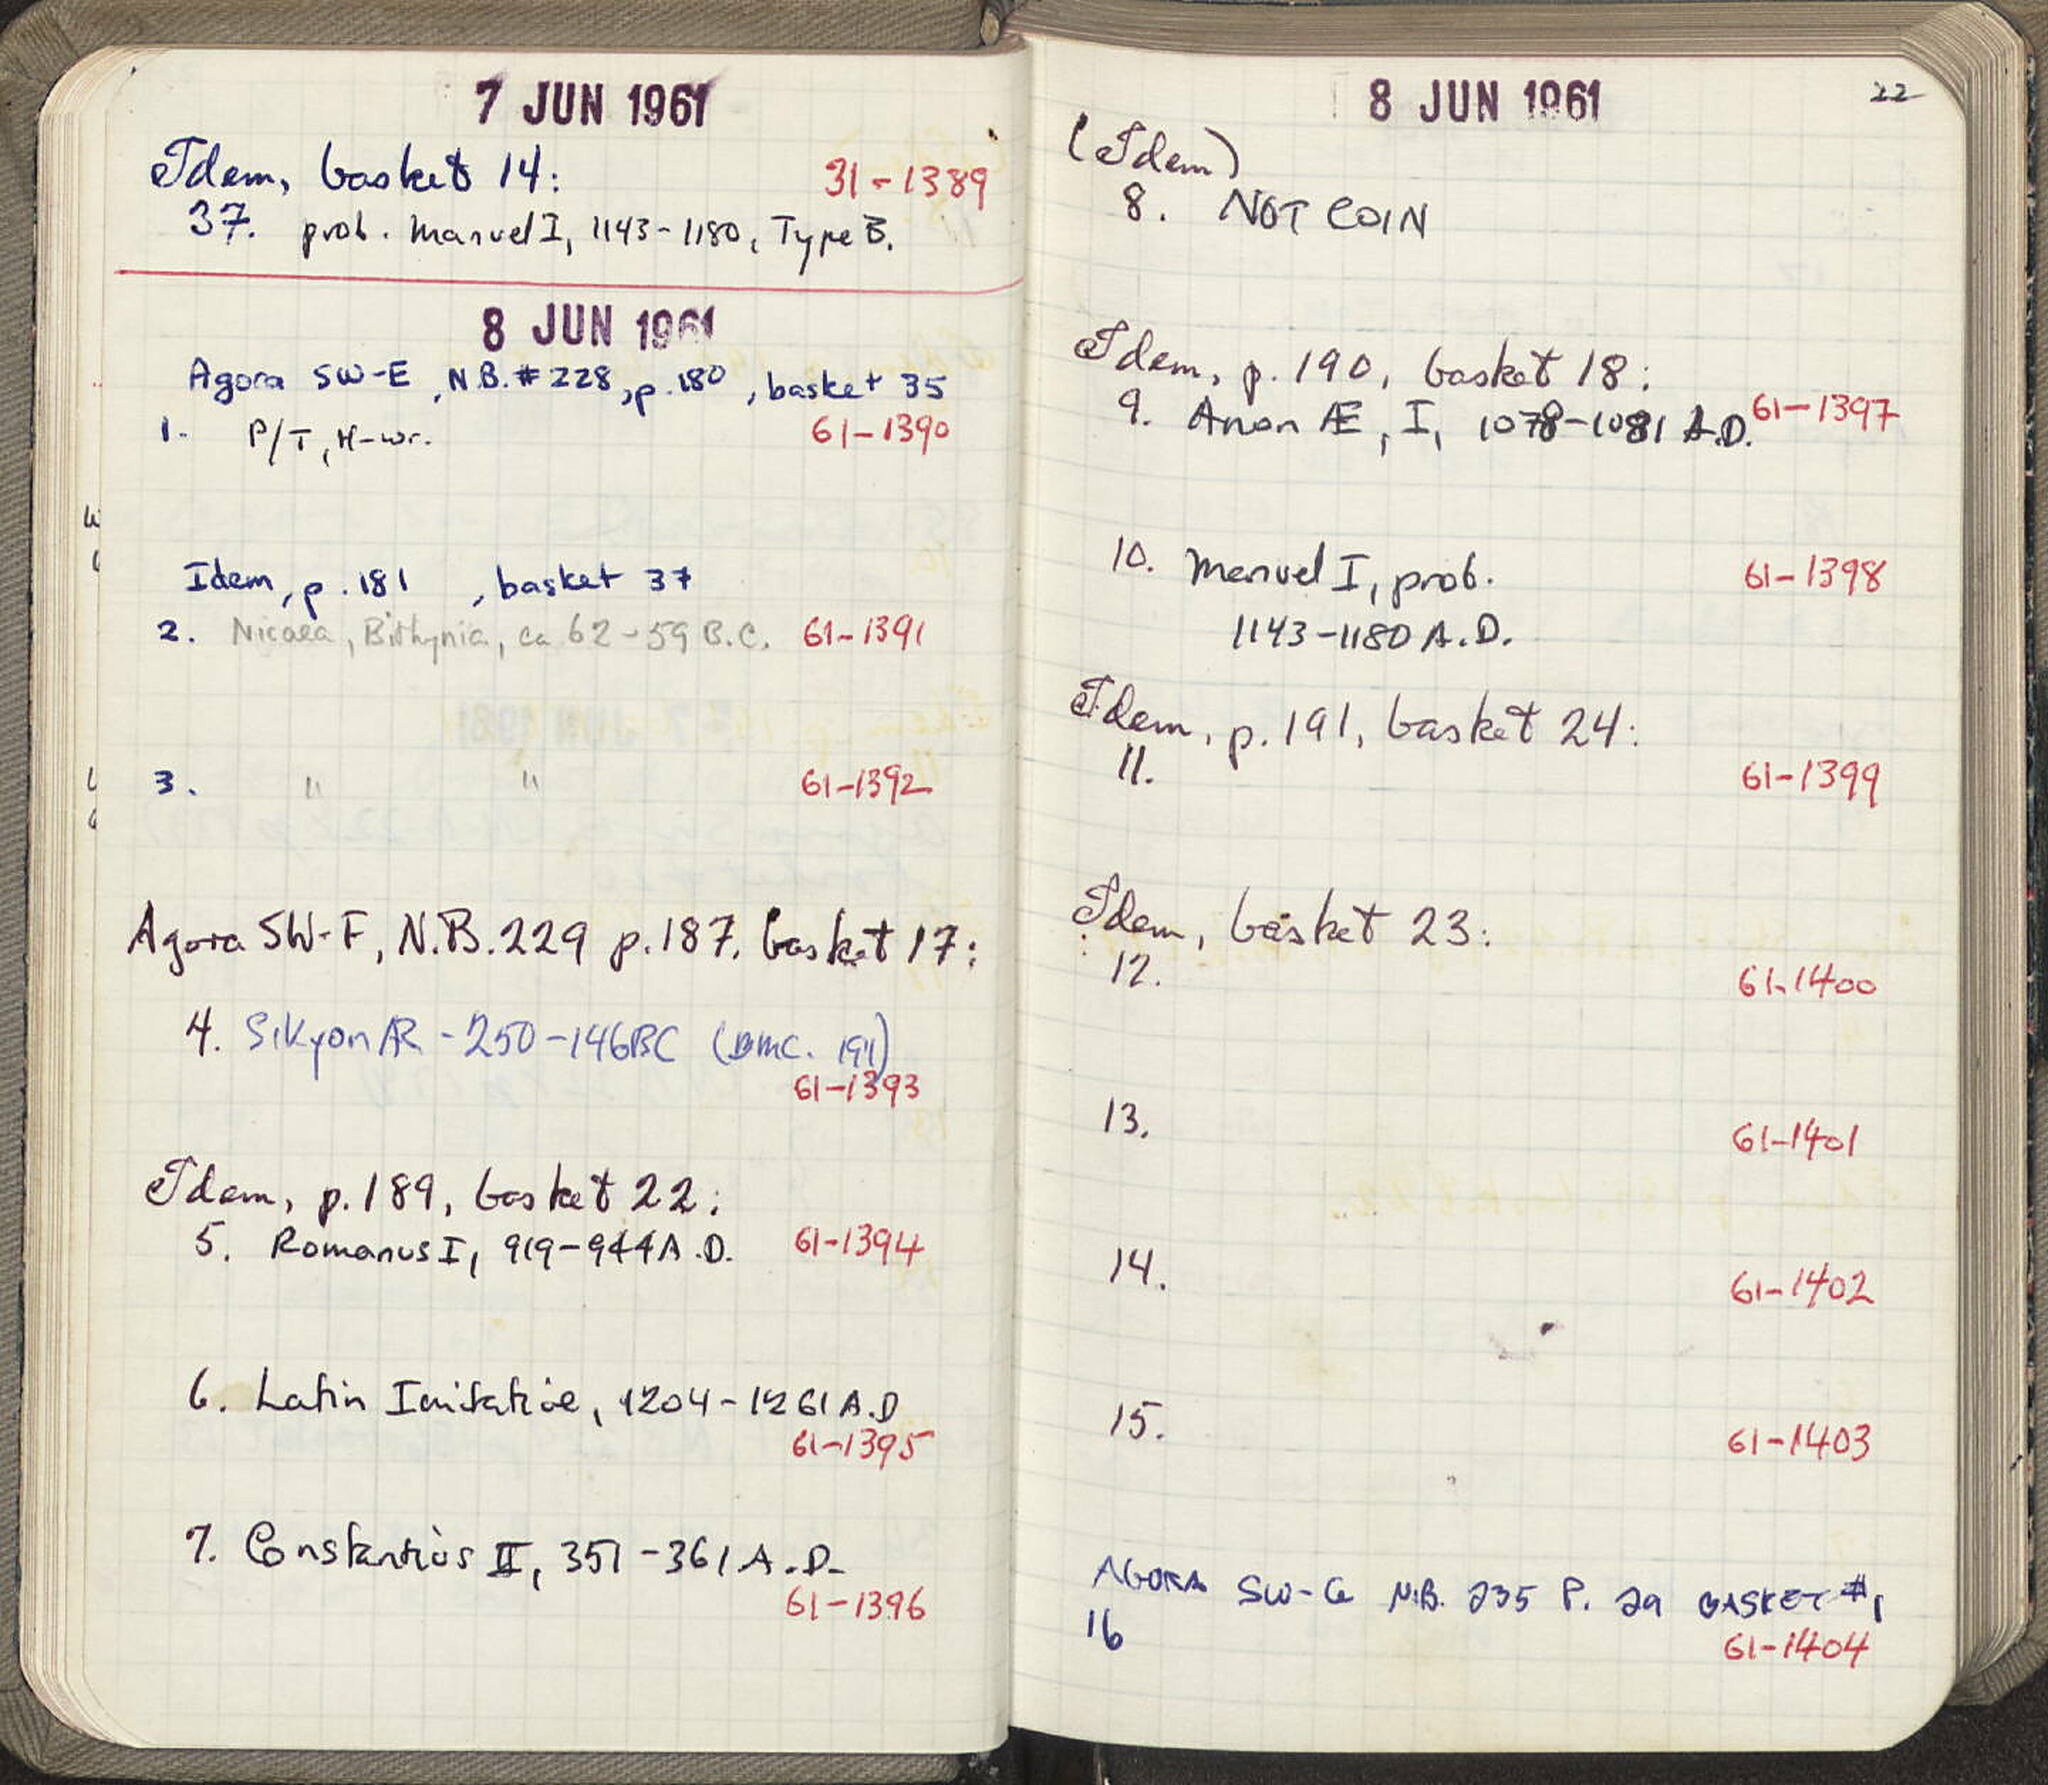 7 JUN 1961
Idem, basket 14:
31-1389
37. prob. Manuel I, 1143-1180, Type B.
8 JUN 1961
Agora SW-E, N.B. # 228, p. 180, basket 35
1. P/T, H-wr. 61-1390
Idem, p. 181, basket 37
2. Nicaea, Bithynia, ca 62-59 B.C. 61-1391
3. " " 61-1392
Agora SW-F, N.B. 229 p. 187, basket 17:
4. Sikyon AR - 250-146BC (BMC. 191)
61-1393
Idem, p. 189, basket 22:
5. Romanus I, 919-944 A.D. 61-1394
6. Latin Imitative, 1204-1261 A.D
61-1395
7. Constantius II, 351-361 A.D.
61-1396
8 JUN 1961
22
(Idem)
8. NOT COIN
Idem, p. 190, basket 18:
9. Anon Æ, I, 1078-1081 A.D. 61-1397
10. Manuel I, prob. 61-1398
1143-1180 A.D.
Idem, p. 191, basket 24:
11. 61-1399
Idem, basket 23:
12. 61-1400
13. 61-1401
14. 61-1402
15. 61-1403
AGORA SW-G N.B. 235 P. 29 BASKET #1
16 61-1404